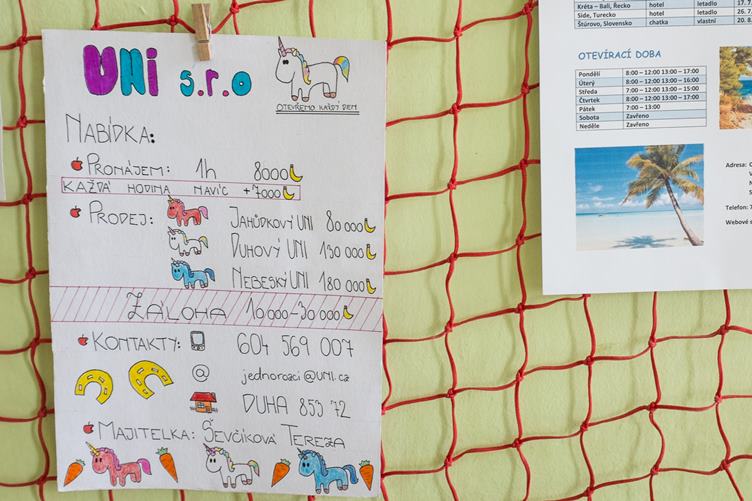 UNI s.r.o
OTEVŘEMO KAŽDÝ DEN
NABÍDKA:
PRONÁJEM: 1h 8000
KAŽDÁ HODINA NAVÍC +7000
PRODEJ: JAHŮDKOVÝ UNI 80 000
DUHOVÝ UNI 130 000
NEBESKÝ UNI 180 000
ZÁLOHA 10 000-30 000
KONTAKTY: 604 569 007
@ jednorozci@UNI.cz
DUHA 853 72
MAJITELKA: ŠEVČÍKOVÁ TEREZA
Kréta – Bali, Řecko hotel letadlo 17. 7.
Side, Turecko hotel letadlo 26. 7.
Štúrovo, Slovensko chatka vlastní 20. 8.
OTEVÍRACÍ DOBA
Pondělí 8:00 – 12:00 13:00 – 17:00
Úterý 8:00 – 12:00 13:00 – 16:00
Středa 7:00 – 12:00 13:00 – 15:00
Čtvrtek 8:00 – 12:00 13:00 – 17:00
Pátek 7:00 – 13:00
Sobota Zavřeno
Neděle Zavřeno
Adresa:
Telefon: 7
Webové s